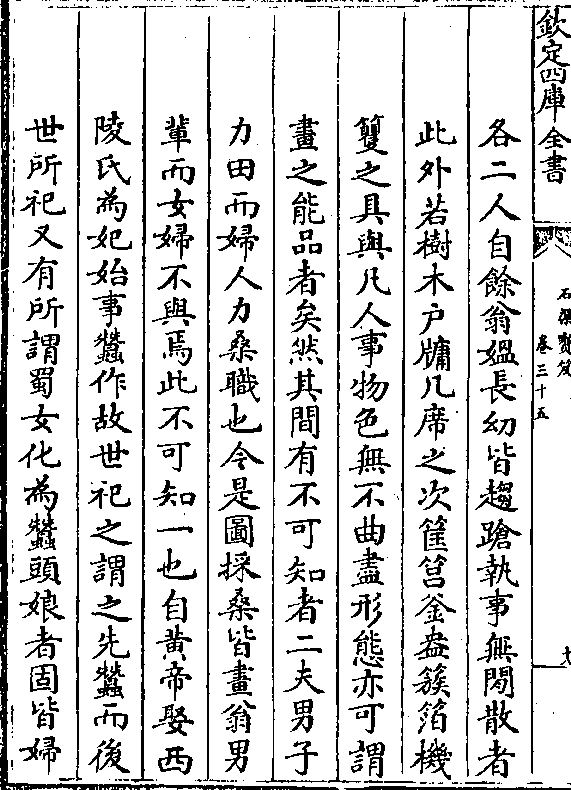 欽定四庫全書
石渠寶笈
卷三十五
各二人自餘翁媼長幼皆趨蹌執事無閒散者
此外若樹木户牖几席之次筐筥釜盎簇箔機
籰之具與凡人事物色無不曲盡形態亦可謂
畫之能品者矣然其間有不可知者二夫男子
力田而婦人力桑職也今是圖採桑皆畫翁男
輩而女婦不與焉此不可知一也自黄帝娶西
陵氏為妃始事蠶作故世祀之謂之先蠶而後
世所祀又有所謂蜀女化為蠶頭娘者固皆婦